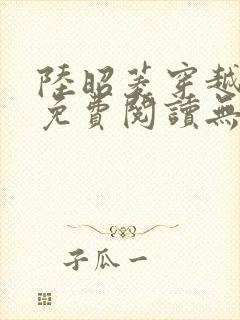 陸昭菱穿越
免費閱讀無
子瓜一